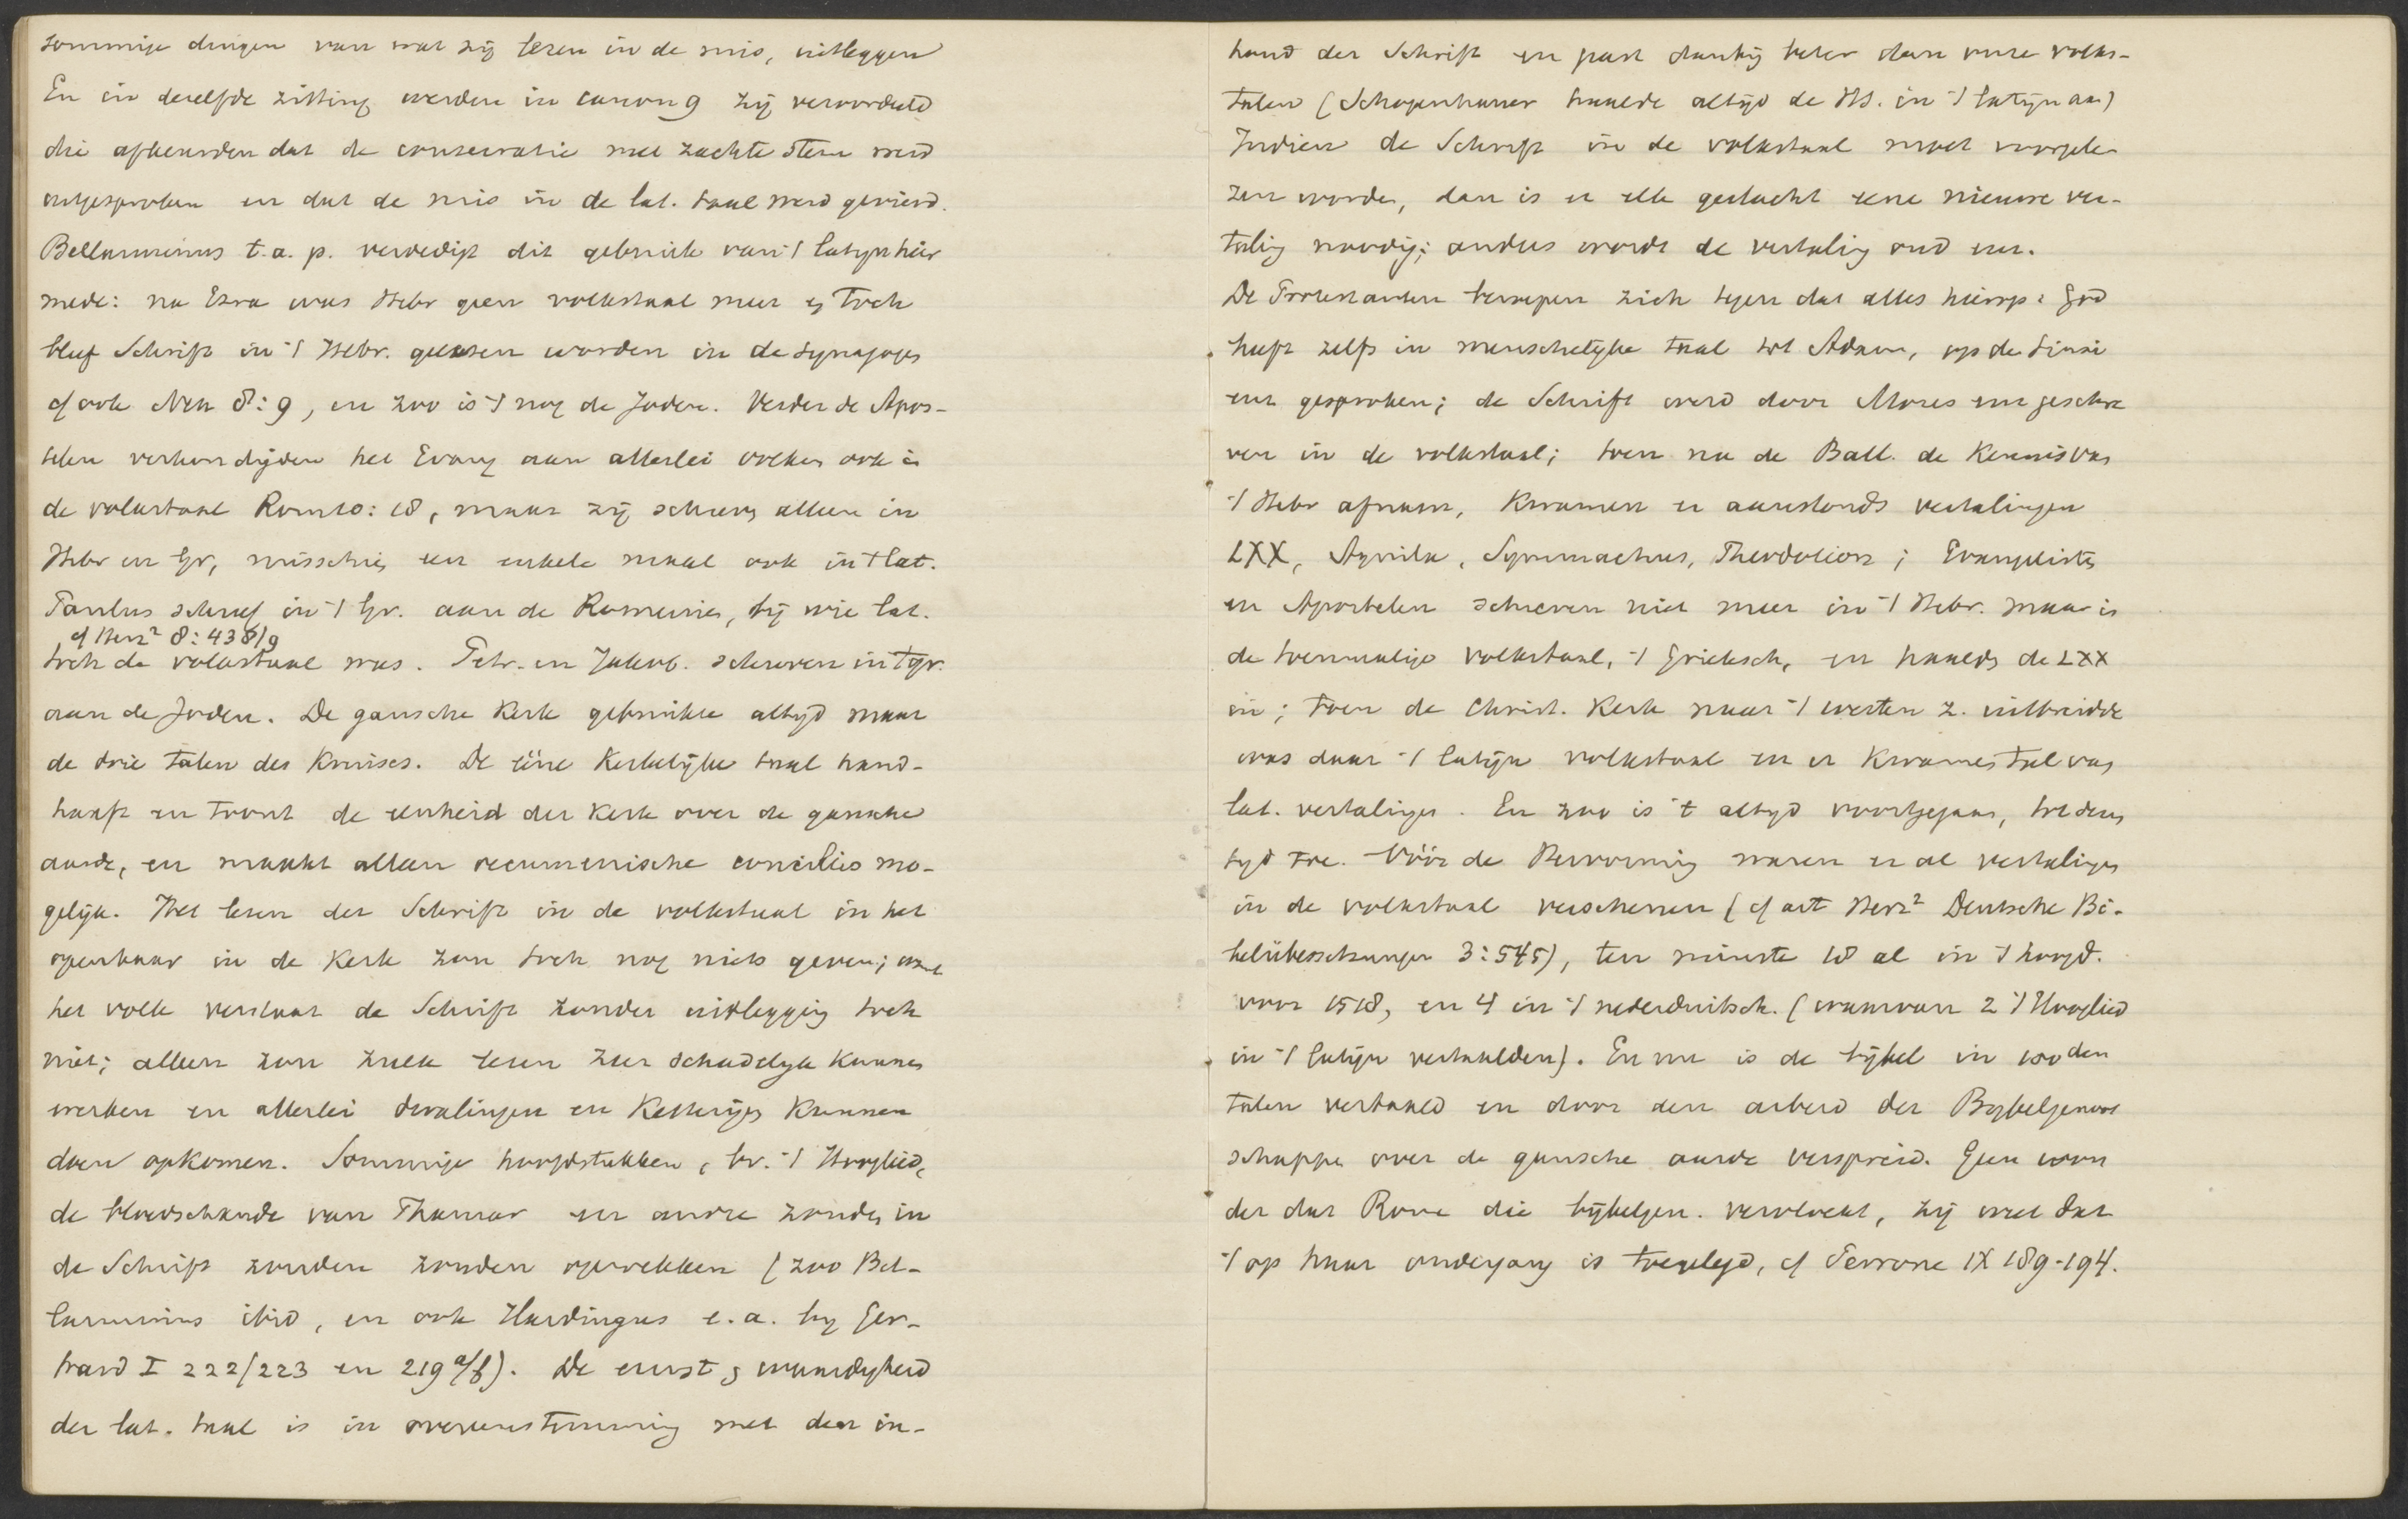 sommige dingen van wat zij lezen in de mis, uitleggen
En in dezelfde zitting werden in canon 9 zij veroordeeld
die afkeurden dat de consecratie met zachte stem werd
uitgesproken en dat de mis in de lat. taal werd gevierd.
Bellarminus t.a.p. verdedigt dit gebruik van 't latijn hier
mede: na Ezra was Hebr geen volkstaal meer en toch
bleef Schrift in 't Hebr. gelezen worden in de Synagoges
cf ook Neh 8:9, en zoo is 't nog de Joden. Verder de Apos-
telen verkondigden het Evang aan allerlei volken ook in
de volkstaal Rom 10:18, maar zij schreven alleen in
Hebr en Gr, misschien een enkele maal ook in 't lat.
Paulus schreef in 't Gr. aan de Romeinen, bij wie lat.
cf Herz² 8:438/9
toch de volkstaal was. Petr. en Jakob. schreven in 't gr.
aan de Joden. De gansche Kerk gebruikte altijd maar
de drie talen des Kruises. De ééne Kerkelijke taal hand-
haaft en toont de eenheid der Kerk over de gansche
aarde, en maakt alleen oecumenische concilies mo-
gelijk. Het lezen der Schrift in de volkstaal in het
openbaar in de Kerk zou toch nog niets geven; want
het volk verstaat de Schrift zonder uitlegging toch
niet; alleen zou zulk lezen zeer schadelijk kunnen
werken en allerlei dwalingen en Ketterijen kunnen
doen opkomen. Sommige hoofdstukken, bv. 't Hooglied,
de bloedschande van Thamar en andre zonden in
de Schrift zouden zonden opwekken (zoo Bel-
larminus ibid, en ook Hardingus e.a. bij Ger-
hard I 222/223 en 219 a/f). De ernst en waardigheid
der lat. taal is in overeenstemming met den in-
houd der Schrift en past dankij beter dan onze volks-
talen (Schopenhauer haalde altijd de HS. in 't latijn aan)
Indien de Schrift in de volkstaal moet voorgele-
zen worden, dan is er elk geslacht eene nieuwe ver-
taling noodig; anders wordt de vertaling oud enz.
De Protestanten beroepen zich tegen dat alles hierop: God
heeft zelfs in menschelijke taal tot Adam, op de Sinai
enz gesproken; de Schrift werd door Mozes enz geschre
ven in de volkstaal; toen na de Ball. de Kennis van
't Hebr afnam, Kwamen er aanstonds vertalingen
LXX, Aquila, Symmachus, Theodotion; Evangelisten
en Apostelen schreven niet meer in 't Hebr. maar in
de toenmalige volkstaal, 't Grieksch, en haalden de LXX
in; toen de Christ. Kerk naar 't westen z. uitbreidde
was daar 't latijn volkstaal en er Kwamen tal van
lat. vertalingen. En zoo is 't altijd voortgegaan, tot dezen
tijd toe. Vóór de Hervorming waren er al vertalingen
in de volkstaal verschenen (cf art Herz² Deutsche Bi-
belübersetzungen 3:545), ten minste 18 al in 't hoogd.
voor 1518, en 4 in 't nederduitsch. (waarvan 2 't Hooglied
in 't latijn vertaalden). En nu is de bijbel in 100den
talen vertaald en door den arbeid der Bijbelgenoot
schappen over de gansche aarde verspreid. Geen won
der dat Rome die bijbelgen. vervloekt, zij weet dat
't op haar ondergang is toegelegd, cf Perrone IX 189-194.